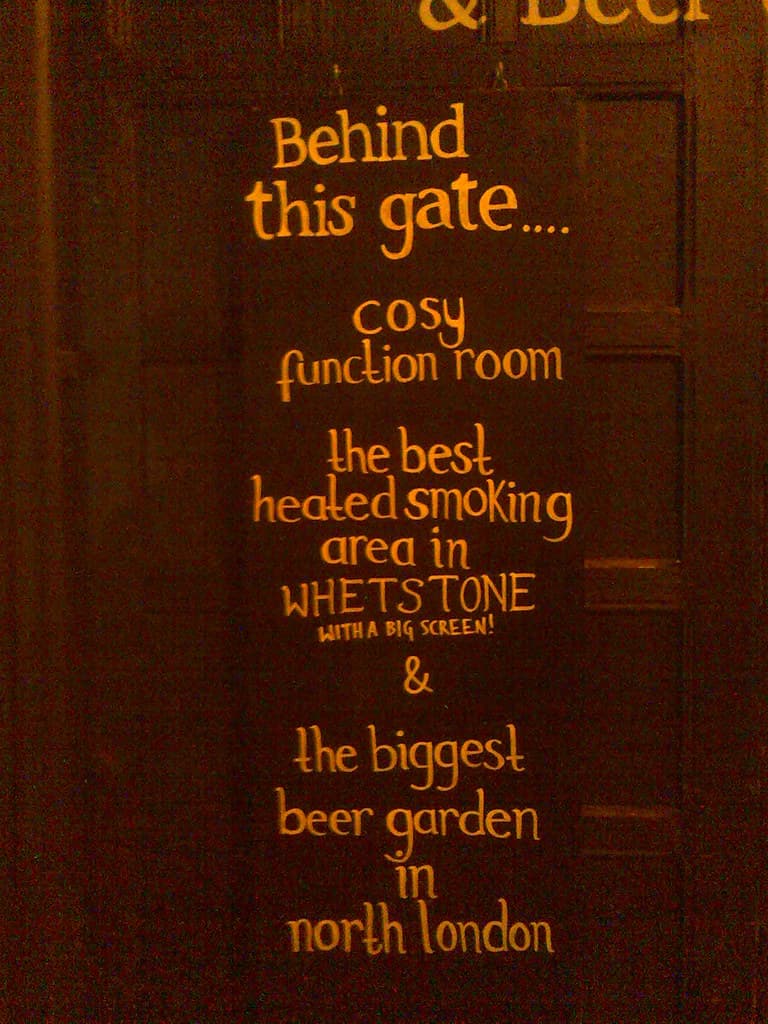 & Beer
Behind
this gate....
cosy
function room
the best
heated smoking
area in
WHETSTONE
WITH A BIG SCREEN!
&
the biggest
beer garden
in
north london